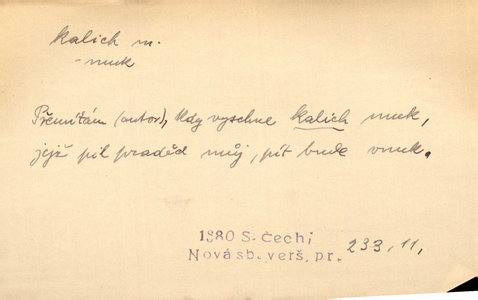 kalich m.
- muk
Přemítám (autor), kdy vyschne kalich muk,
jejž pil praděd můj, pít bude vnuk.
1880 S. Čech,
Nová sb. verš. pr. 233, 11,